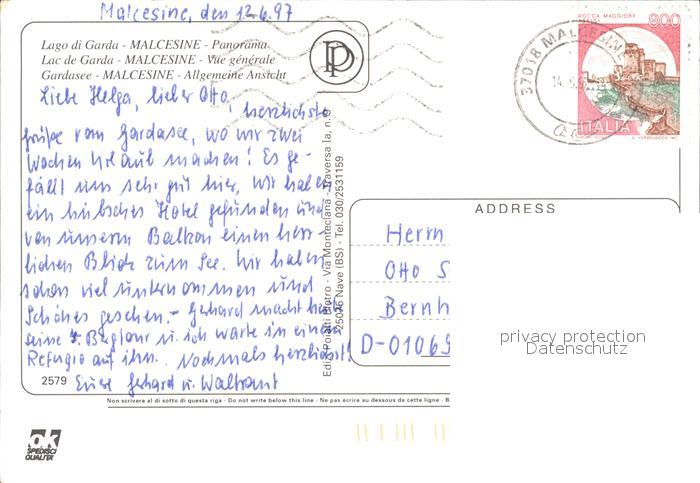 Malcesine, den 12.6.97
Lago di Garda - MALCESINE - Panorama
Lac de Garda - MALCESINE - Vue générale
Gardasee - MALCESINE - Allgemeine Ansicht
P
Liebe Helga, lieber Otto, herzlichste
Grüße vom Gardasee, wo wir zwei
Wochen Urlaub machen! Es ge-
fällt uns sehr gut hier, wir haben
ein hübsches Hotel gefunden und
von unserm Balkon einen herr-
lichen Blick zum See. Wir haben
schon viel unternommen und
Schönes gesehen. - Gerhard macht heute
seine 5. Bergtour u. ich warte in einem
Refugio auf ihn. Nochmals herzlichst!
Eure Gerhard u. Waltraut
2579
Ediz. Poletti Pietro - Via Monteclana - Traversa Ia, n. 9
25075 Nave (BS) - Tel. 030/2531159
Non scrivere al di sotto di questa riga - Do not write below this line - Ne pas écrire au dessous de cette ligne - B
ok
SPEDISCI
QUALITÀ
37018 MALCESINE
ROCCA MAGGIORE
800
ITALIA
ADDRESS
Herrn
Otto S
Bernh
D-01069
privacy protection
Datenschutz